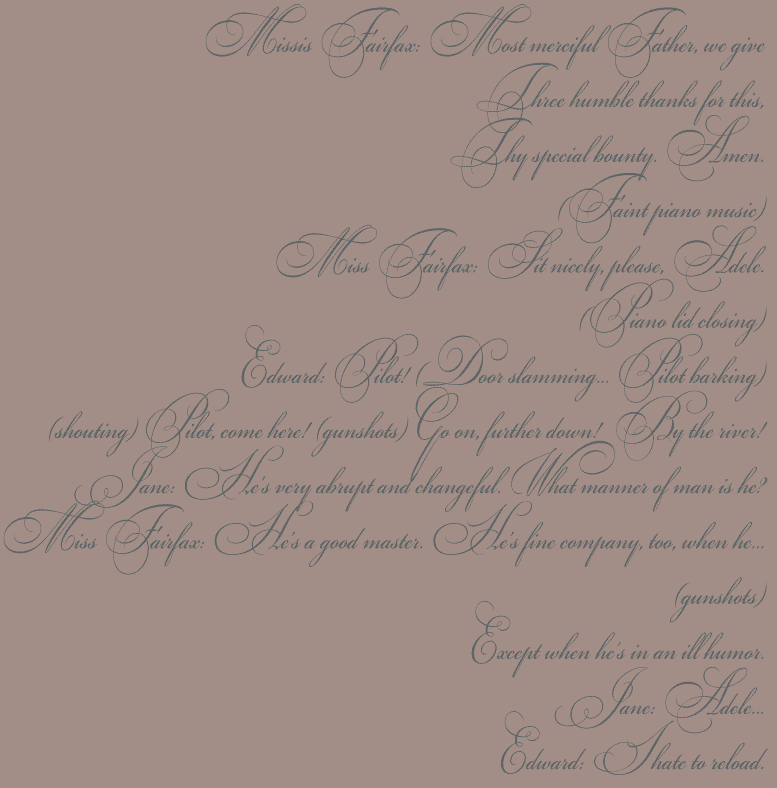 Missis Fairfax: Most merciful Father, we give
Three humble thanks for this,
Thy special bounty. Amen.
(Faint piano music)
Miss Fairfax: Sit nicely, please, Adele.
(Piano lid closing)
Edward: Pilot! (Door slamming... Pilot barking)
(shouting) Pilot, come here! (gunshots) Go on, further down! By the river!
Jane: He's very abrupt and changeful. What manner of man is he?
Miss Fairfax: He's a good master. He's fine company, too, when he...
(gunshots)
Except when he's in an ill humor.
Jane: Adele...
Edward: I hate to reload.